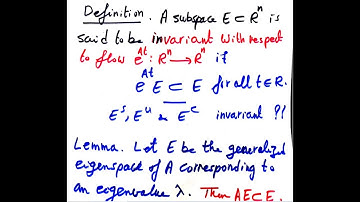 Definition. A subspace E ⊂ Rⁿ is
said to be invariant with respect
to flow e^At : Rⁿ → Rⁿ if
e^At E ⊂ E for all t ∈ R.
E^s, E^u & E^c invariant ?!
Lemma. Let E be the generalized
eigenspace of A corresponding to
an eigenvalue λ. Then AE ⊂ E.